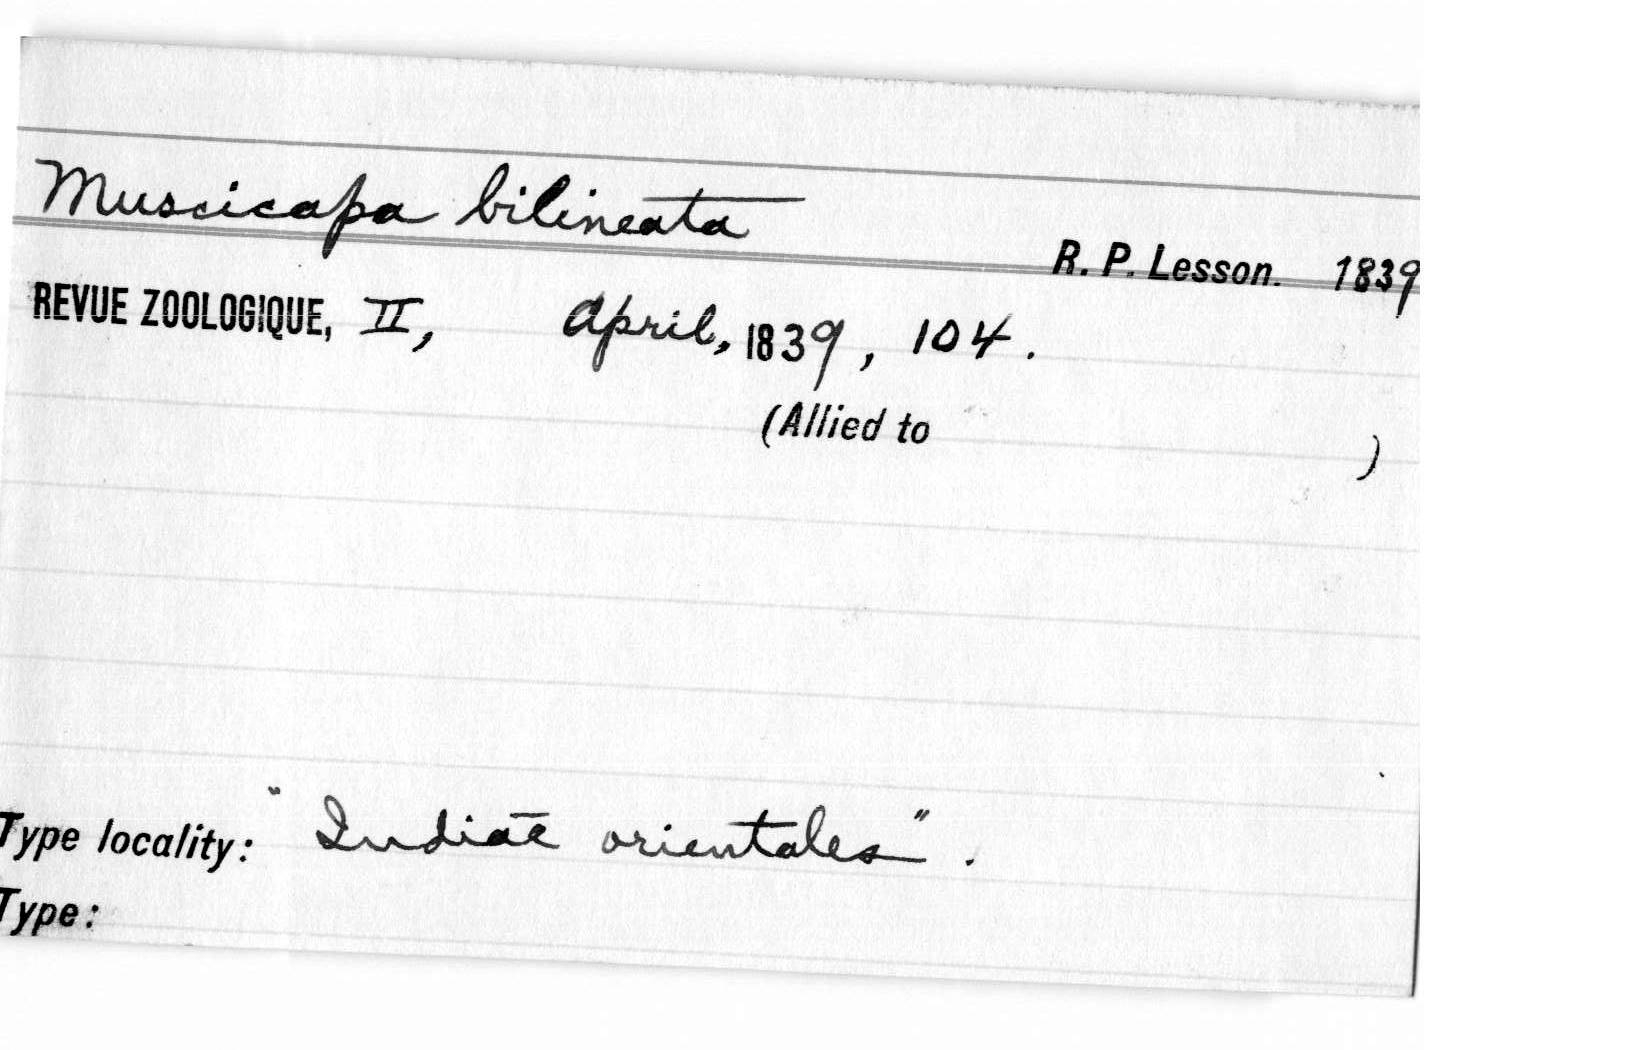 Muscicapa bilineata
R. P. Lesson. 1839
REVUE ZOOLOGIQUE, II, April, 1839, 104.
(Allied to )
Type locality: "Indiae orientales".
Type: